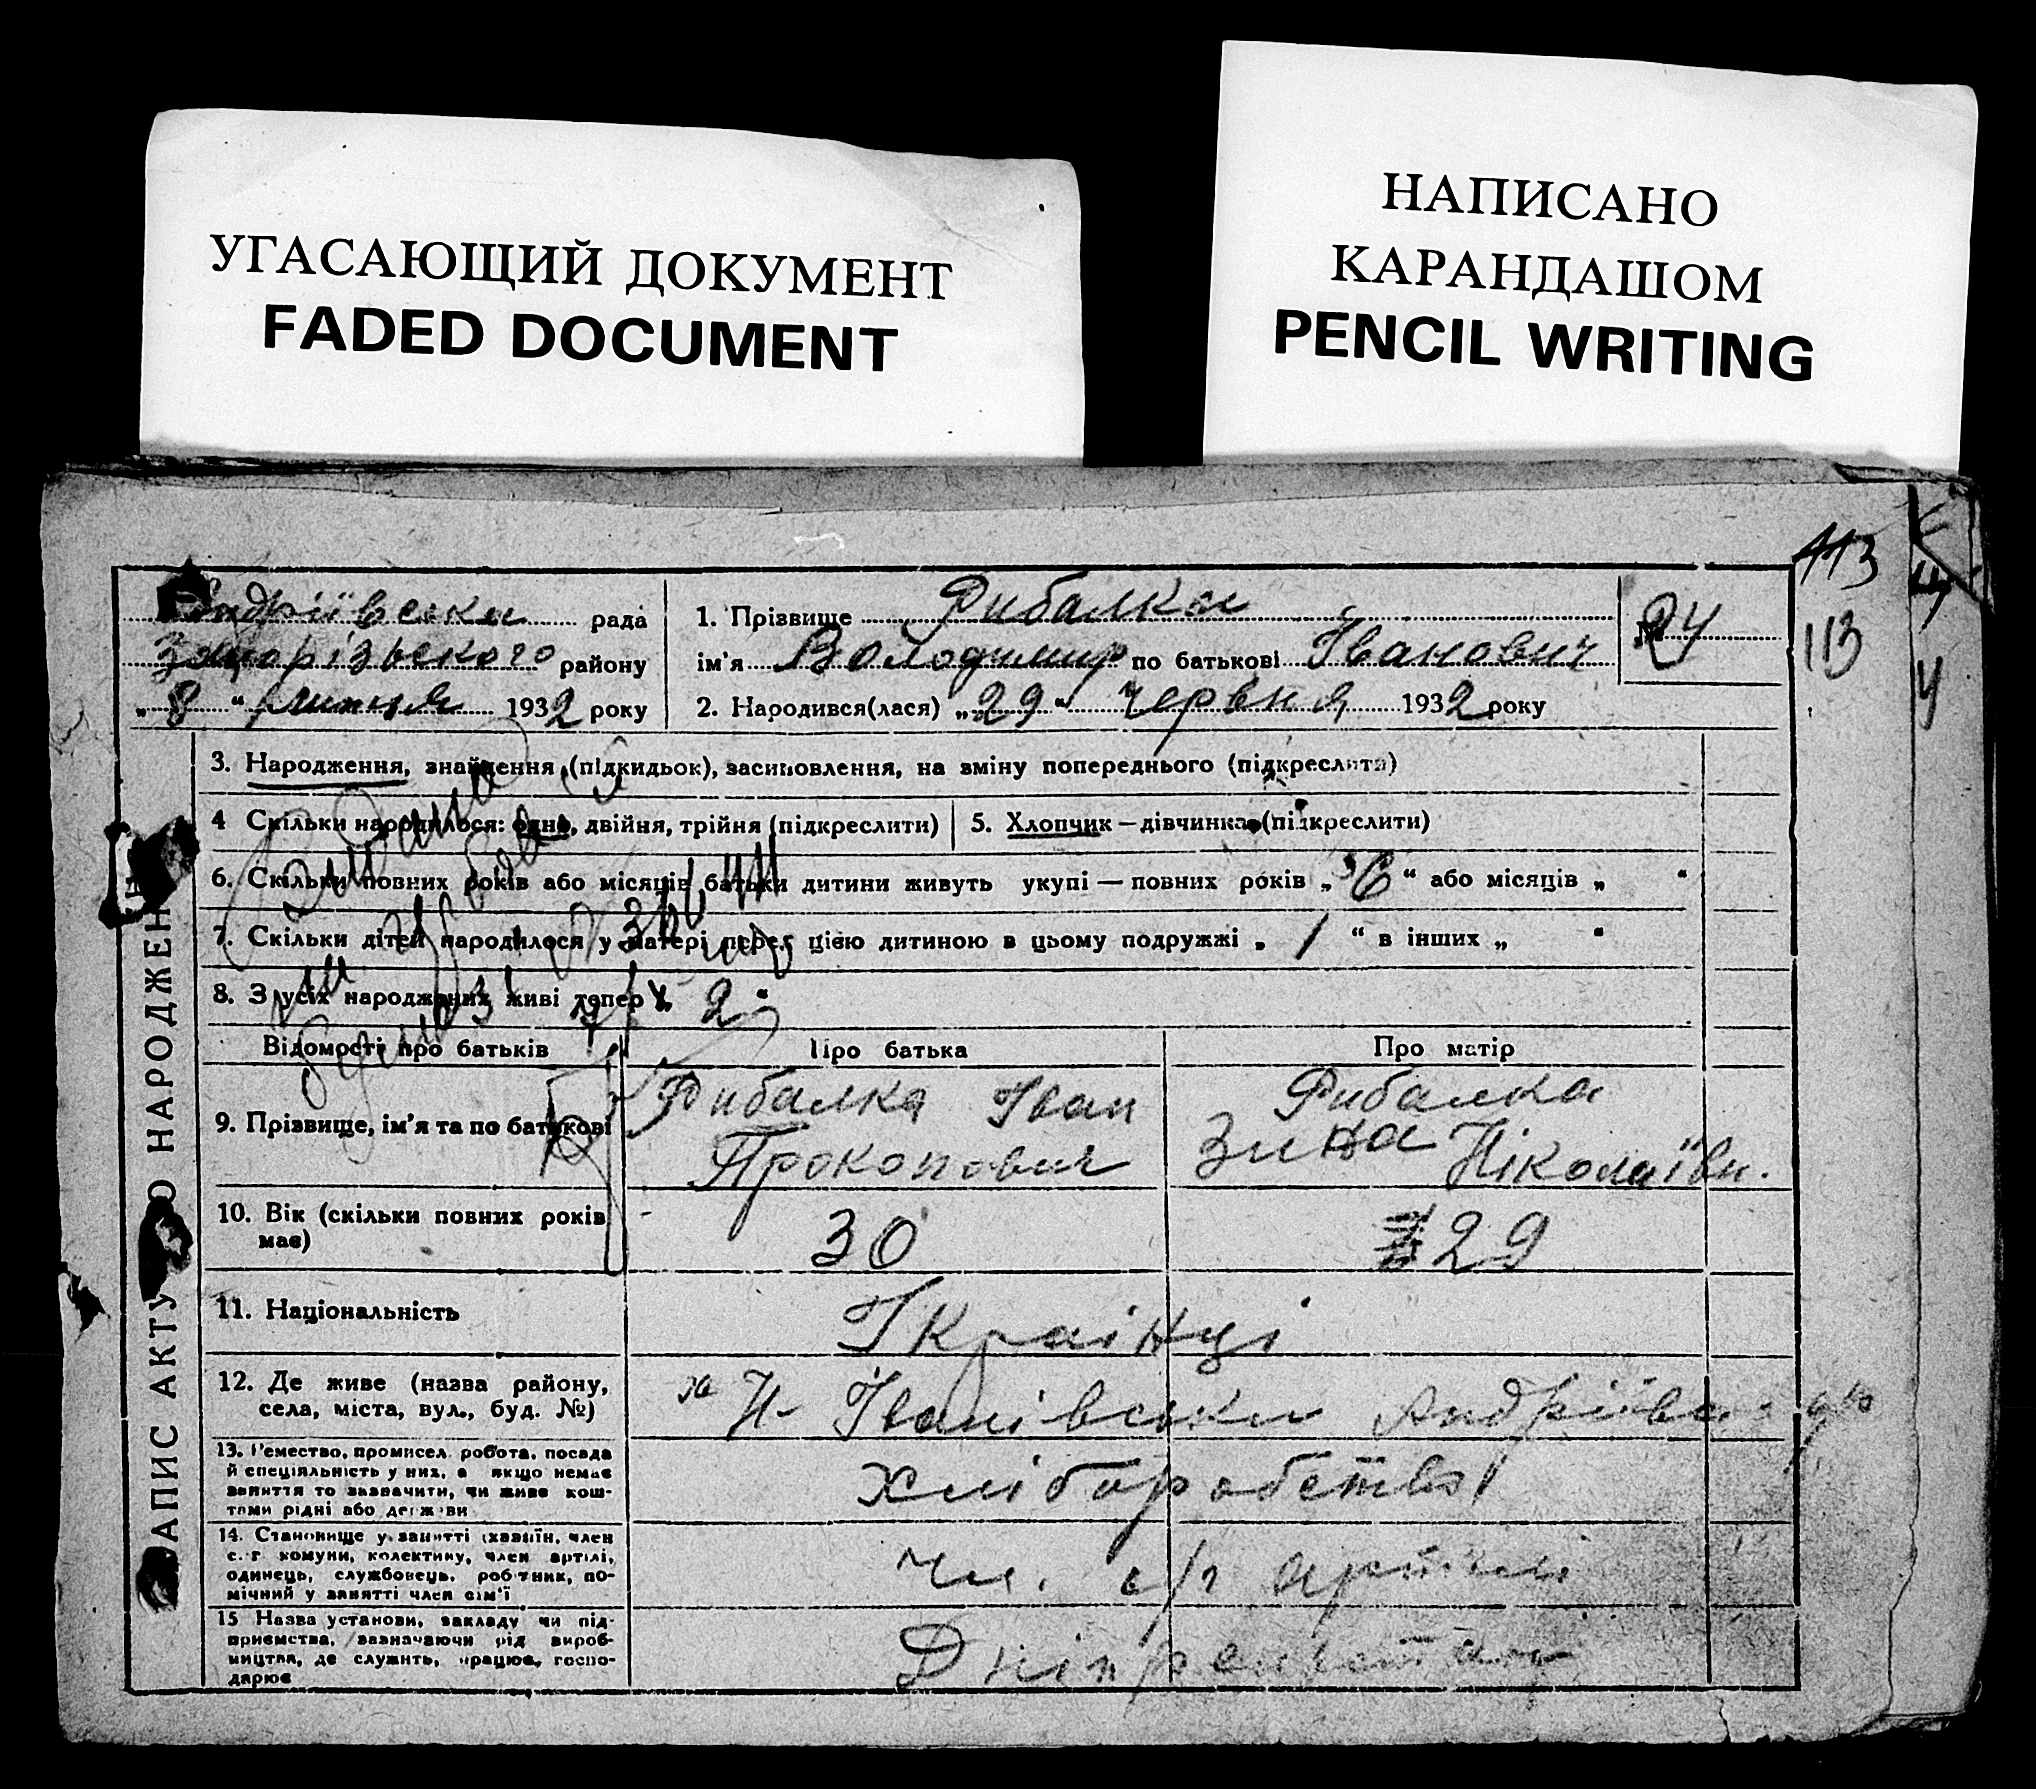 УГАСАЮЩИЙ ДОКУМЕНТ
FADED DOCUMENT
НАПИСАНО
КАРАНДАШОМ
PENCIL WRITING
113
Андріївська рада
Запорізьского району
„8“ липня 1932 року
1. Прізвище Рибалка
ім'я Володимир по батькові Іванович
2. Народився(лася) „29“ червня 1932 року
24
113
4
ЗАПИС АКТУ О НАРОДЖЕН
3. Народження, знайдення (підкидьок), засиновлення, на зміну попереднього (підкреслити)
4 Скільки народилося: одно, двійня, трійня (підкреслити)
5. Хлопчик — дівчинка (підкреслити)
6. Скільки повних років або місяців батьки дитини живуть укупі — повних років „6“ або місяців „ “
7. Скільки дітей народилося у матері перед цією дитиною в цьому подружжі „1“ в інших „ “
8. З усіх народжених живі тепер „2“
Відомості про батьків
Про батька
Про матір
9. Прізвище, ім'я та по батькові
Рибалка Іван
Прокопович
Рибалка
Зина Ніколаївн.
10. Вік (скільки повних років
має)
30
29
11. Національність
Україінці
12. Де живе (назва району,
села, міста, вул., буд. №)
Н- Іванівськи Андріївс
13. Ремество, промисел, робота, посада
й спеціяльність у них, а якщо немає
заняття то зазначити, чи живе кош-
тами рідні або держави
Хліборобство
14. Становище у занятті (хазяїн, член
с.-г комуни, колективу, член артілі,
одинець, службовець, робітник, по-
мічний у занятті член сім'ї
чл. с/г артілі
15 Назва установи, закладу чи під-
приємства, зазначаючи рід вироб-
ництва, де служить, працює, госпо-
дарює